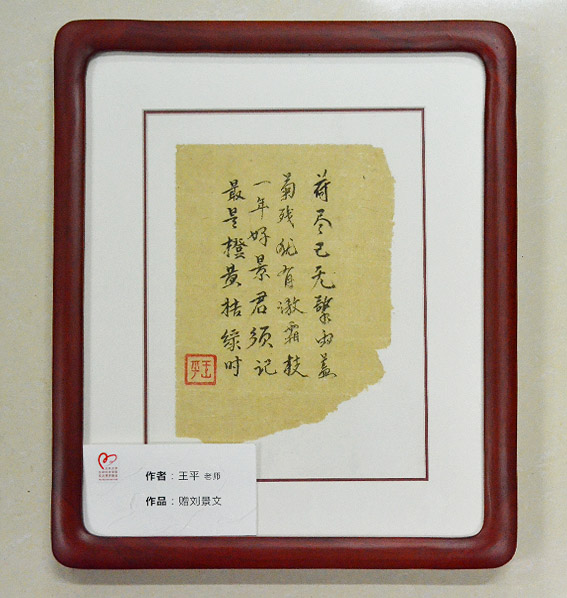 荷尽已无擎雨盖
菊残犹有傲霜枝
一年好景君须记
最是橙黄桔绿时
王平
作者：王平 老师
作品：赠刘景文